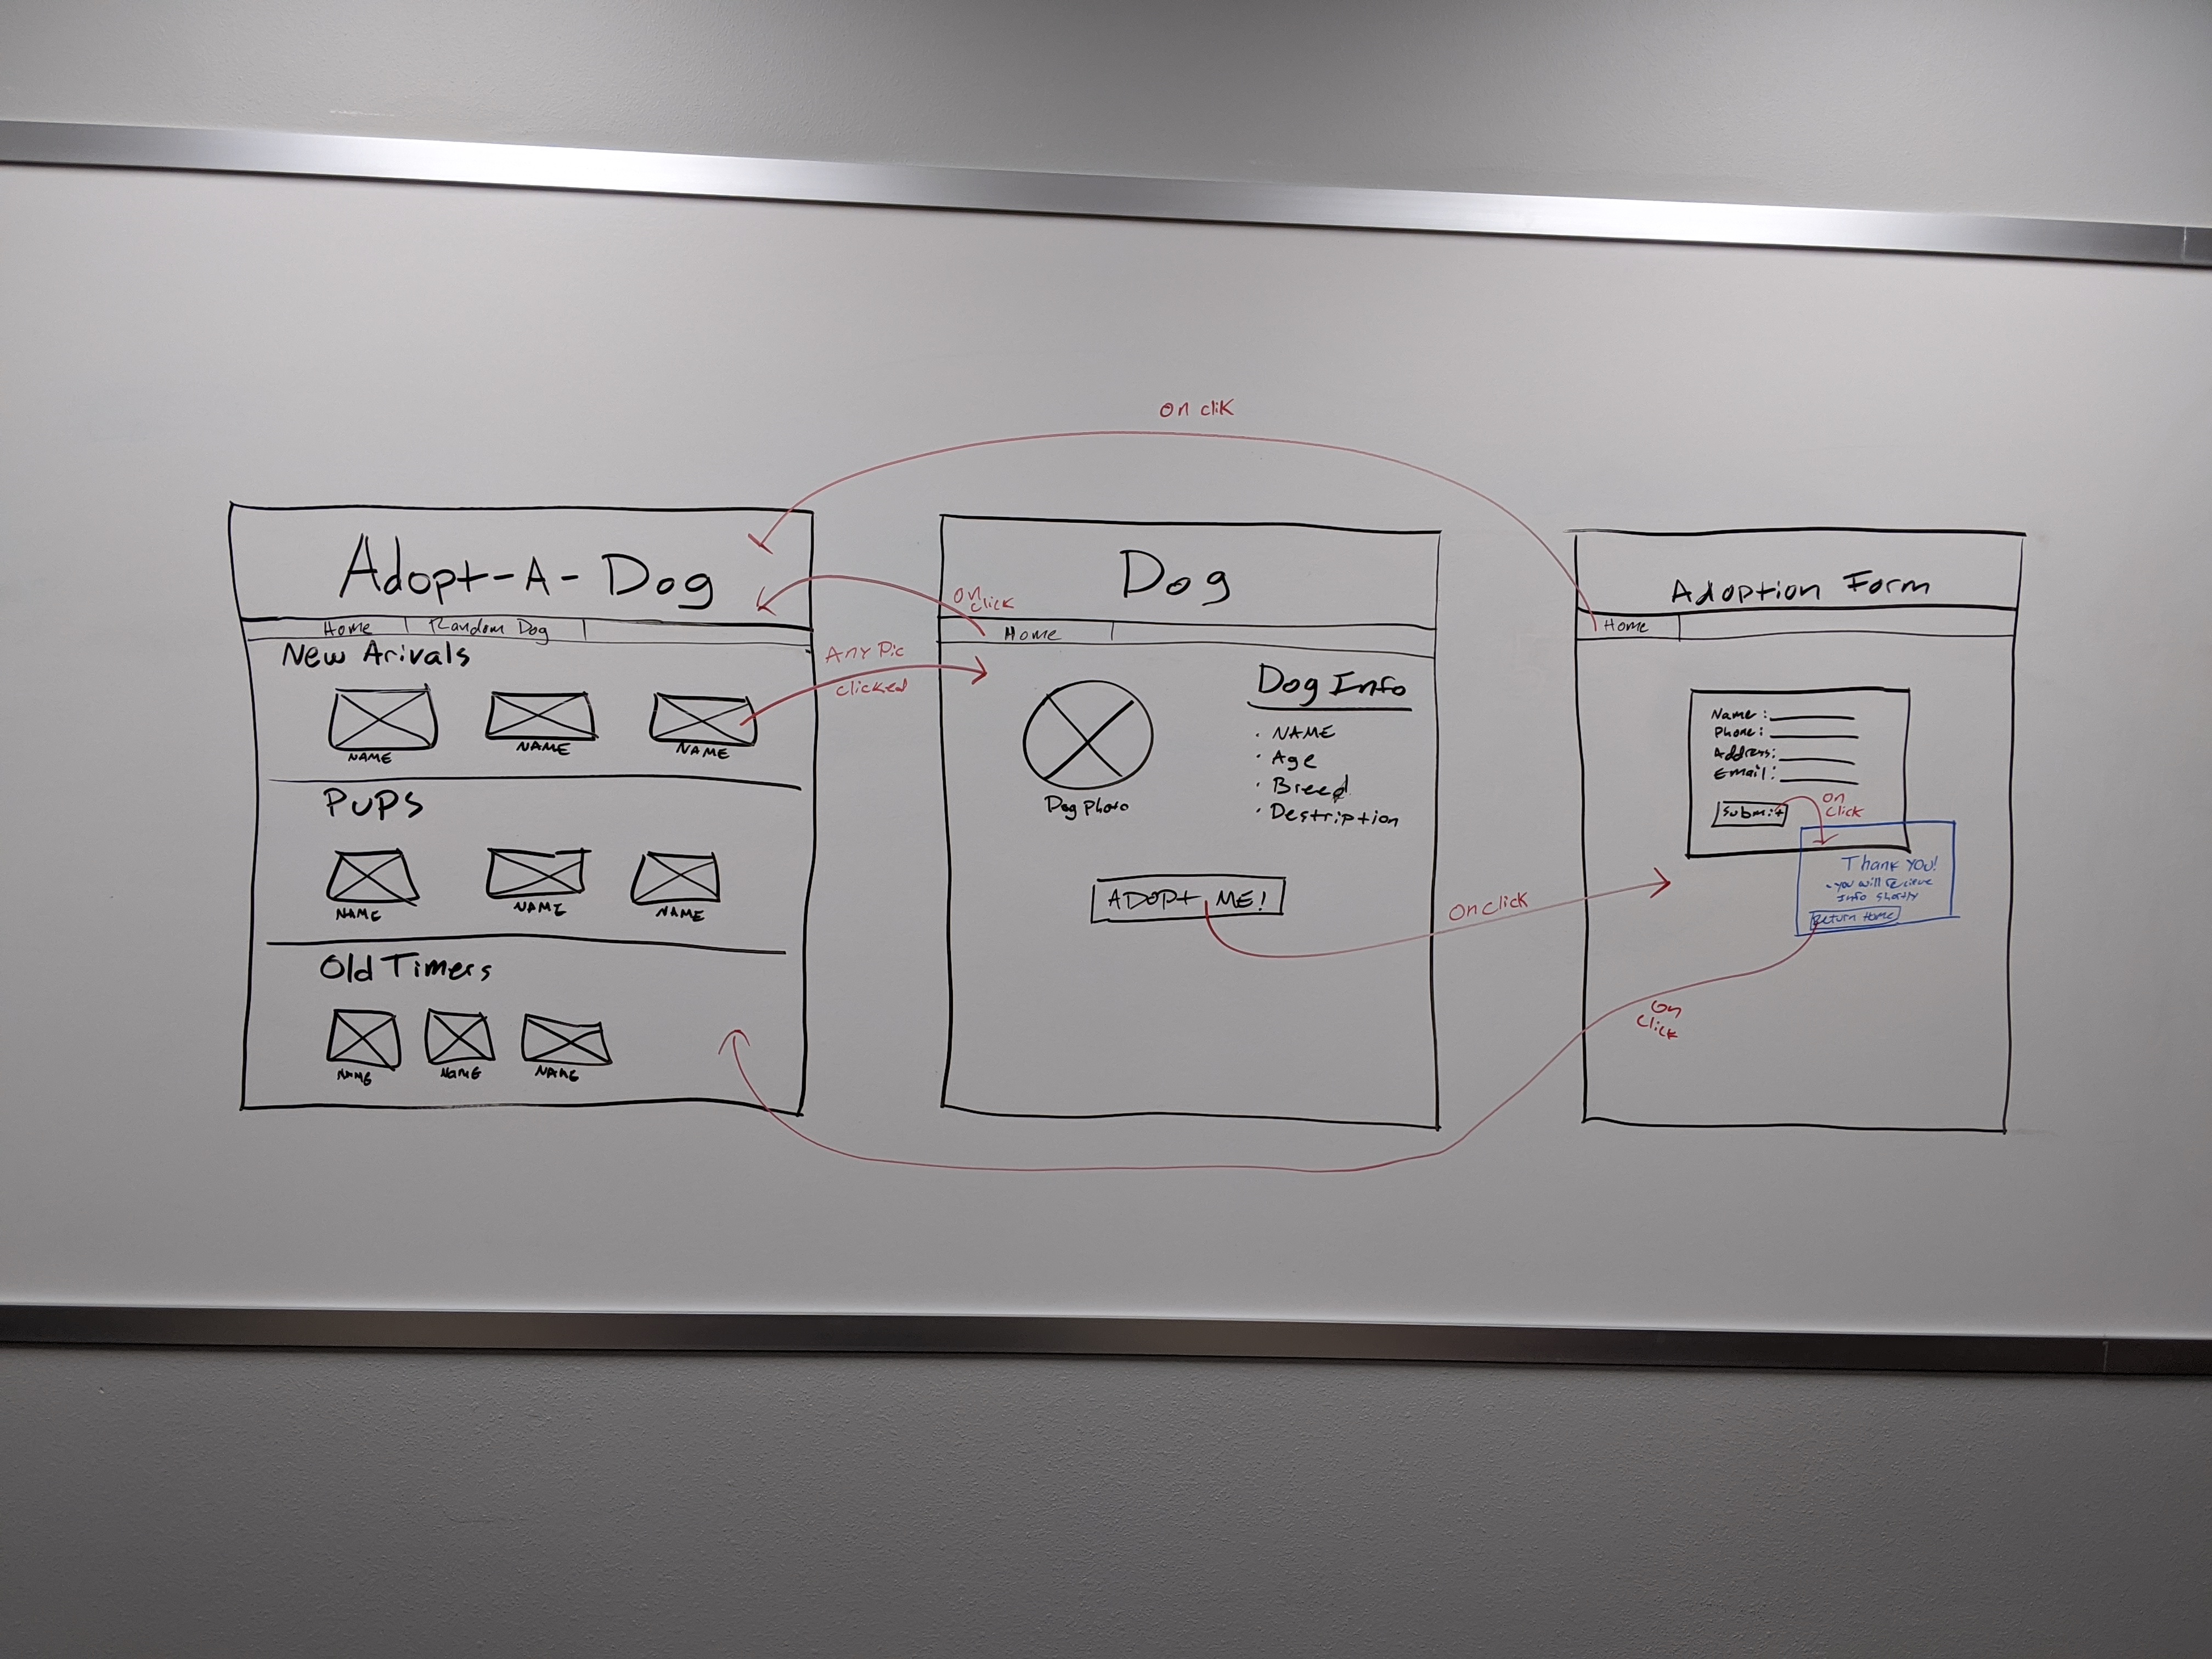 On clik
Adopt-A-Dog
Home
Random Dog
New Arivals
NAME
NAME
NAME
Pups
NAME
NAME
NAME
Old Timers
NAME
NAME
NAME
Any Pic
clicked
On
click
Dog
Home
Dog Photo
Dog Info
· NAME
· Age
· Breed
· Destription
ADOPT ME!
On Click
Adoption Form
Home
Name:
Phone:
Address:
Email:
Submit
On
Click
Thank You!
- you will recieve
Info shortly
Return Home
On
Click